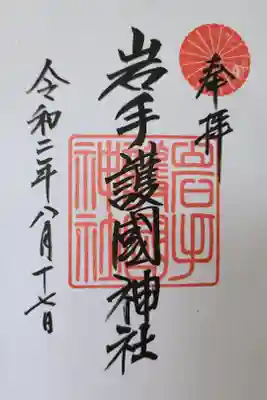 奉拝
岩手護國神社
岩手護國神社
令和二年八月十七日